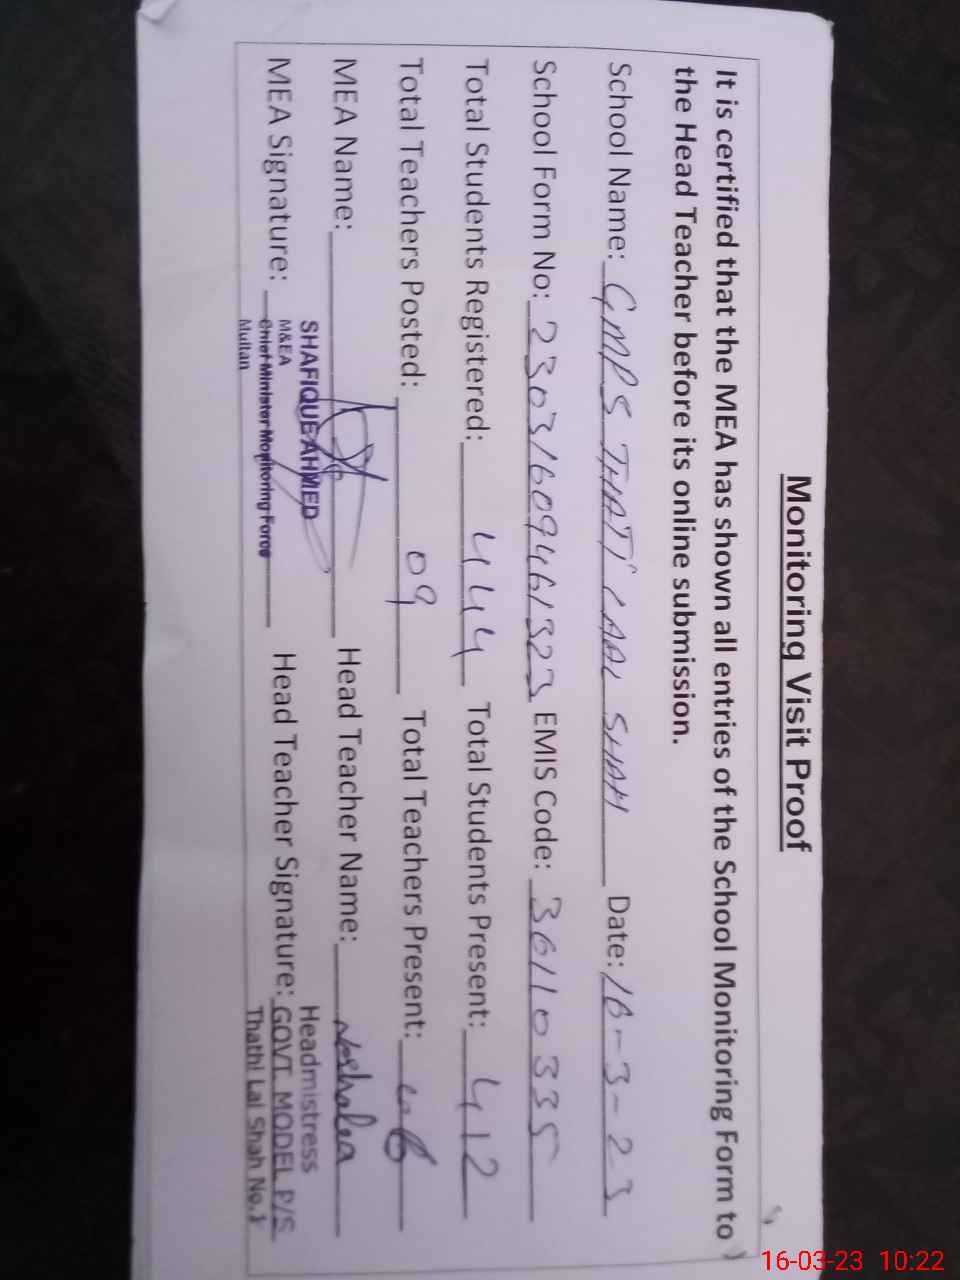 Monitoring Visit Proof
It is certified that the MEA has shown all entries of the School Monitoring Form to
the Head Teacher before its online submission.
School Name: GMPS THATI LAAL SHAH Date: 16-3-23
School Form No: 23031609461323 EMIS Code: 36110335
Total Students Registered: 444 Total Students Present: 412
Total Teachers Posted: 09 Total Teachers Present:
MEA Name: Head Teacher Name:
SHAFIQUE AHMED Headmistress
M&EA
MEA Signature: Chief Minister Monitoring Force Head Teacher Signature: GOVT. MODEL P/S
Multan Thathi Lal Shah No.1
16-03-23 10:22